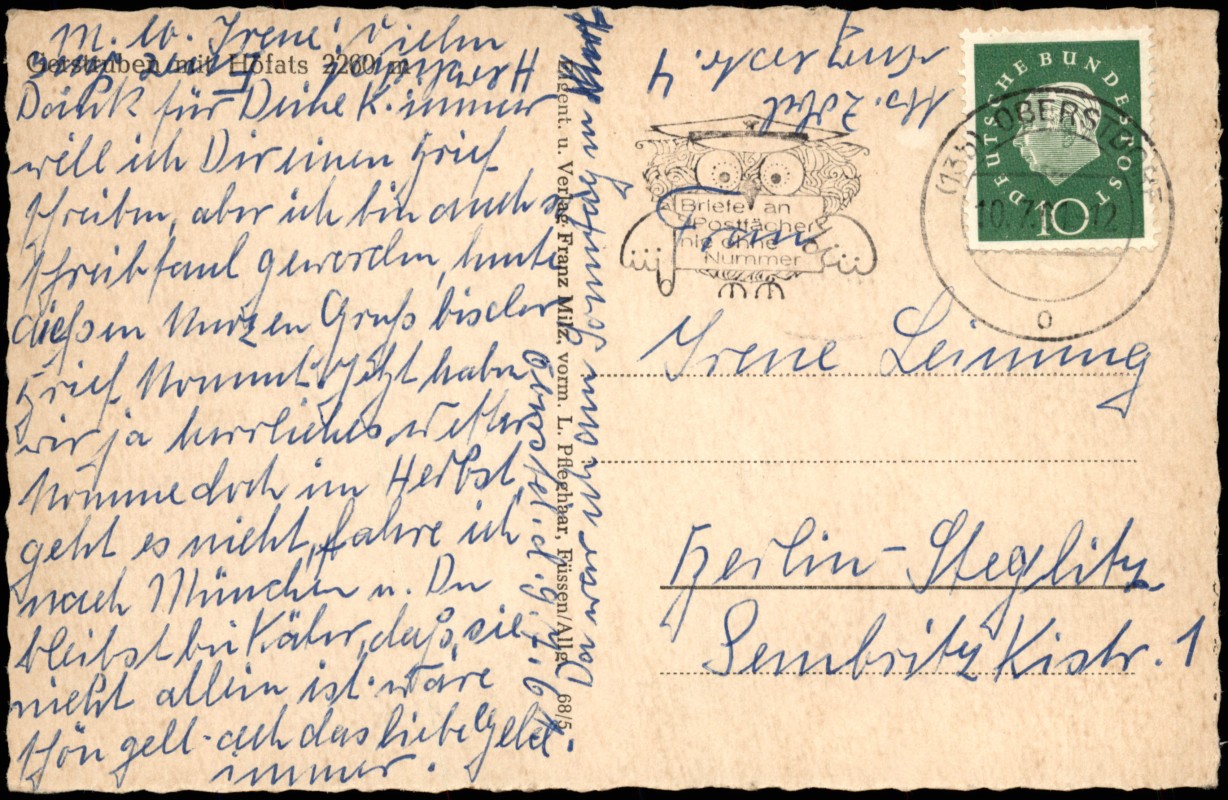 M. lb. Irene! Vielen
Gerstruben mit Höfats 2260 m
Dank für Deine K. immer
will ich Dir einen Brief
schreiben, aber ich bin auch so
schreibfaul geworden, heute
diesen kurzen Gruß bis der
Brief kommt. Jetzt haben
wir ja herrliches Wetter
komme doch im Herbst,
geht es nicht, fahre ich
nach München u. Du
bleibst bei Käthe, daß sie
nicht allein ist. wäre
schön gell. ach das liebe Geld
immer.
Oberstd. d. 9.7.61.
Eigent. u. Verlag Franz Milz, vorm. L. Pfleghaar, Füssen/Allg. 68/5
4
Briefe an
Postfächer
nie ohne
Nummer
DEUTSCHE BUNDESPOST
10
(13b) OBERSTDORF
10.7.61-12
o
Frau
Irene Leinung
Berlin-Steglitz
Sembritzkistr. 1